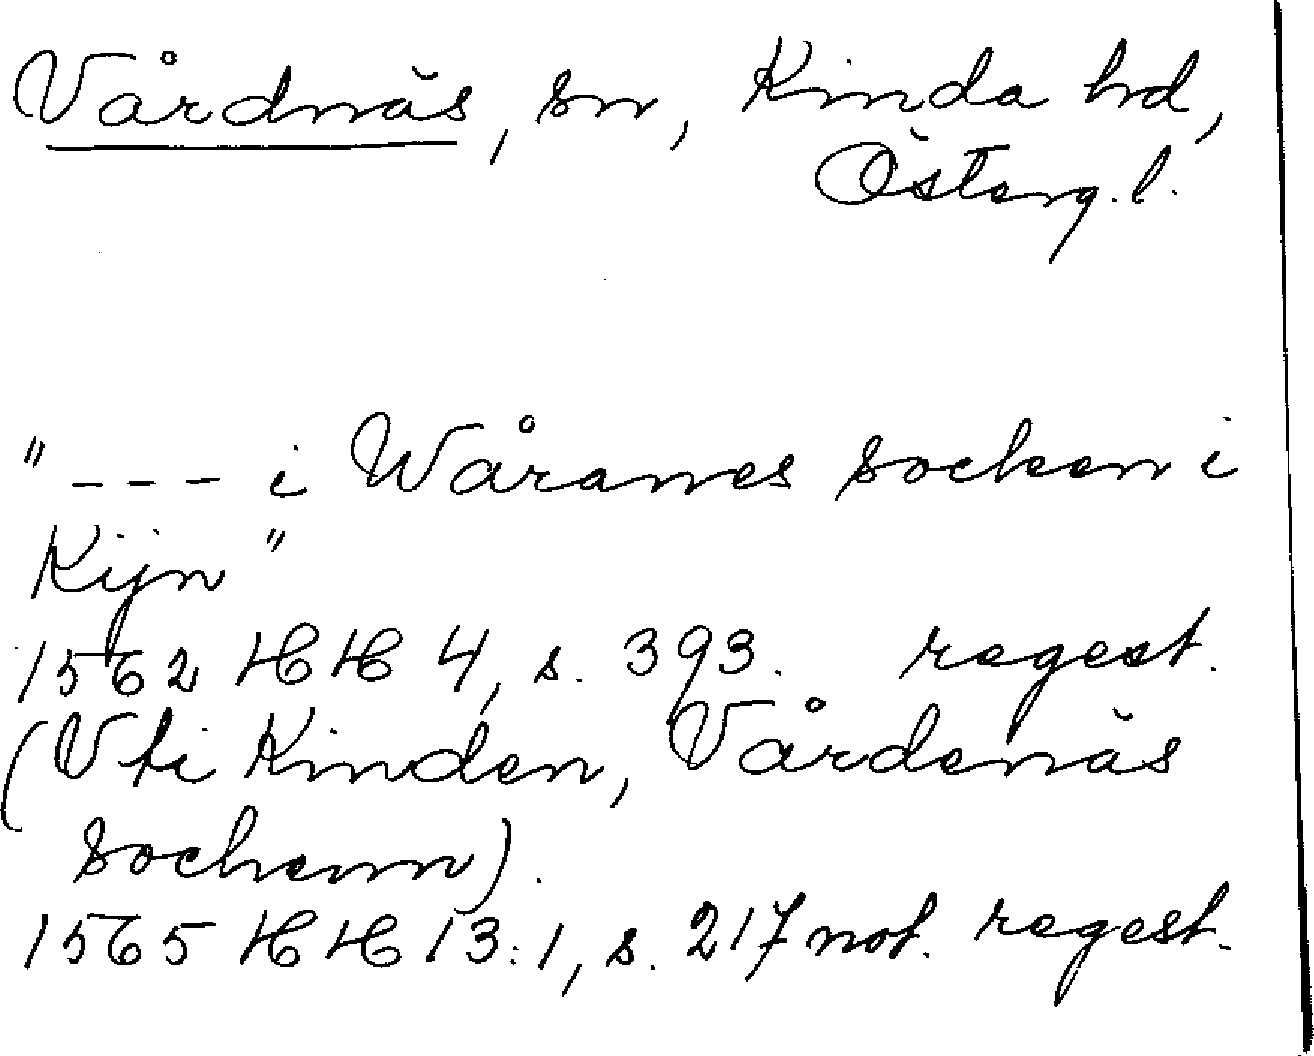 Vårdnäs, sn, Kinda hd,
Österg. l.
"--- i Wåranes socken i
Kijn"
1562 HH 4, s. 393. regest.
(Vti Kinden, Vårdenäs
sochenn).
1565 HH 13:1, s. 217 not. regest.